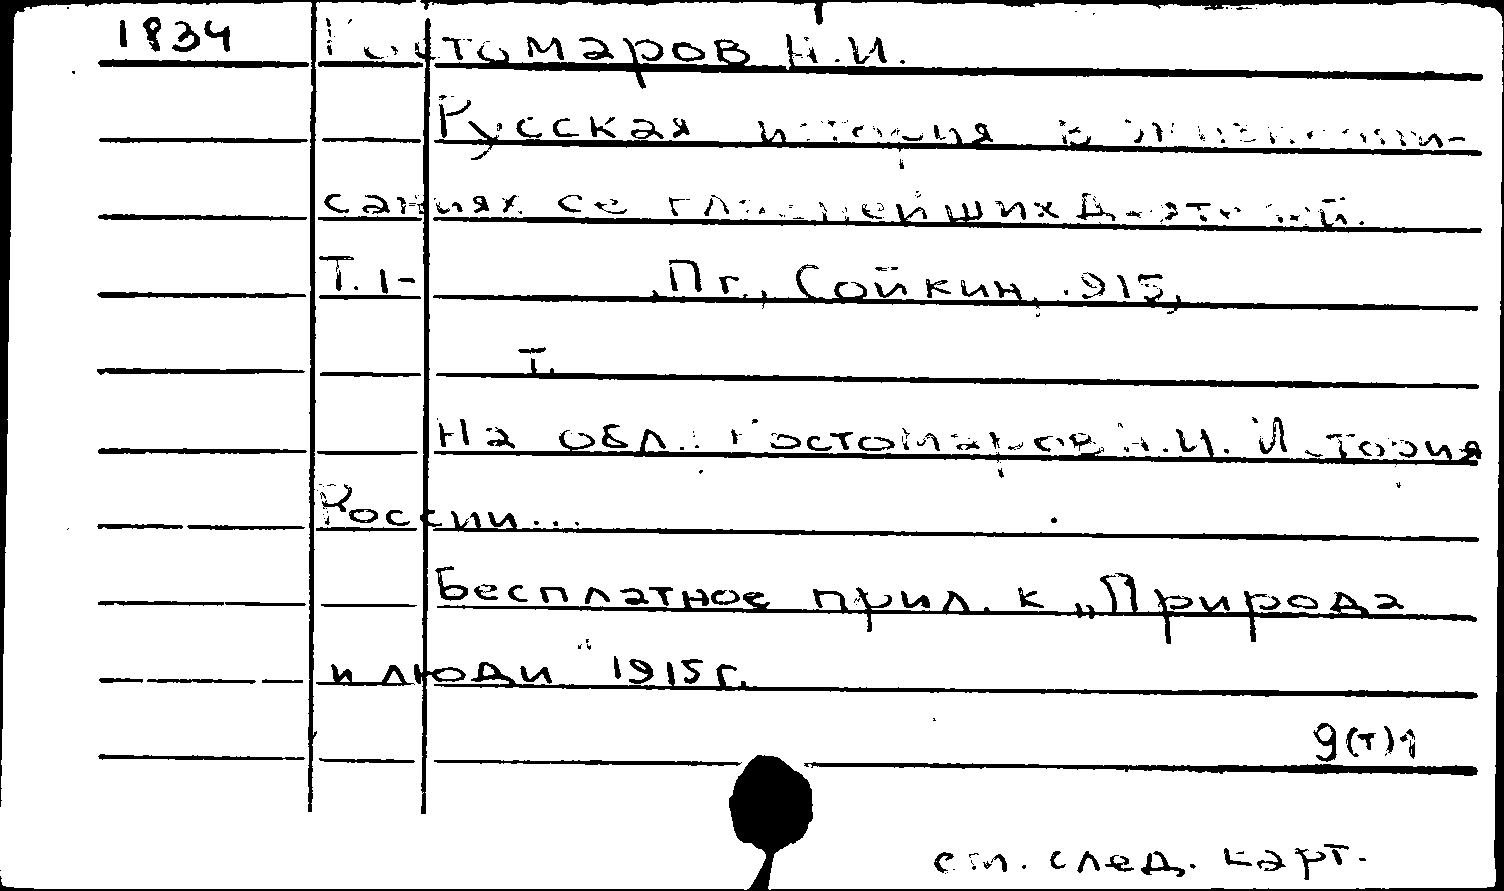 1834 Костомаров Н.И.
Русская история в жизнеопи-
саниях ее главнейших деятелей.
Т. 1- , Пг., Сойкин, 1915,
т.
На обл.: Костомаров Н.И. История
России...
Бесплатное прил. к „Природа
и люди" 1915г.
9(т)1
см. след. карт.